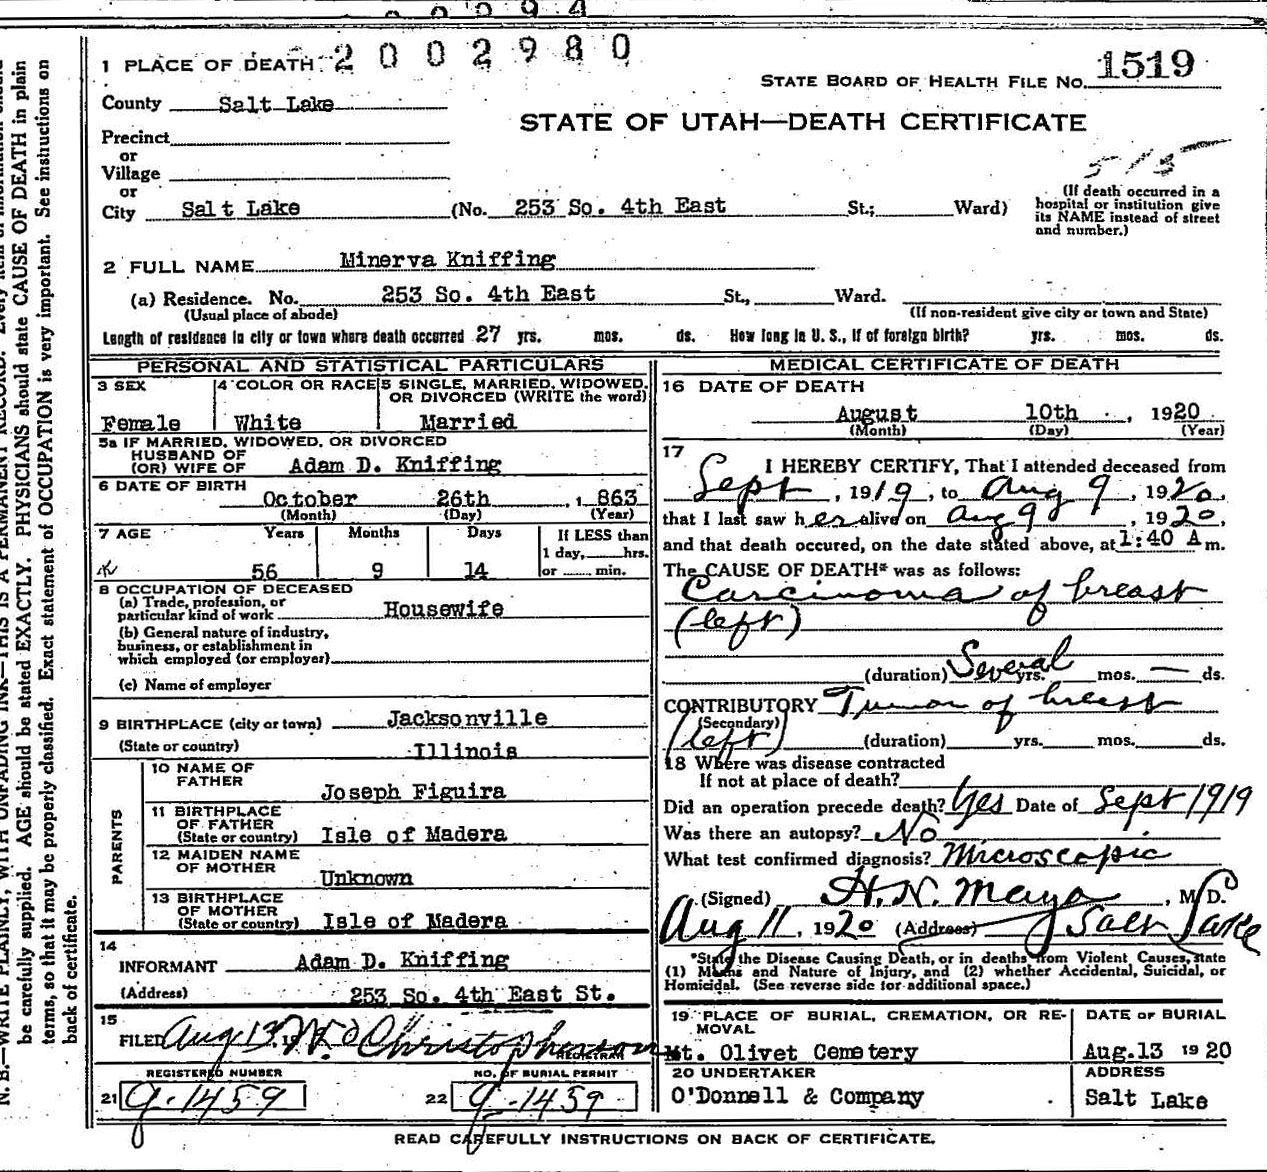 2002980
1 PLACE OF DEATH
STATE BOARD OF HEALTH FILE NO. 1519
County Salt Lake
STATE OF UTAH—DEATH CERTIFICATE
Precinct
or
Village
515
or
City Salt Lake (No. 253 So. 4th East St.; Ward)
(If death occurred in a hospital or institution give its NAME instead of street and number.)
2 FULL NAME Minerva Kniffing
(a) Residence. No. 253 So. 4th East St., Ward.
(Usual place of abode) (If non-resident give city or town and State)
Length of residence in city or town where death occurred 27 yrs. mos. ds. How long in U. S., if of foreign birth? yrs. mos. ds.
PERSONAL AND STATISTICAL PARTICULARS
3 SEX
Female
4 COLOR OR RACE
White
5 SINGLE, MARRIED, WIDOWED, OR DIVORCED (WRITE the word)
Married
5a IF MARRIED, WIDOWED, OR DIVORCED
HUSBAND OF
(OR) WIFE OF Adam D. Kniffing
6 DATE OF BIRTH
October 26th , 1863
(Month) (Day) (Year)
7 AGE Years Months Days If LESS than
1 day, hrs.
56 9 14 or min.
8 OCCUPATION OF DECEASED
(a) Trade, profession, or
particular kind of work Housewife
(b) General nature of industry,
business, or establishment in
which employed (or employer)
(c) Name of employer
9 BIRTHPLACE (city or town) Jacksonville
(State or country) Illinois
PARENTS
10 NAME OF
FATHER Joseph Figuira
11 BIRTHPLACE
OF FATHER
(State or country) Isle of Madera
12 MAIDEN NAME
OF MOTHER
Unknown
13 BIRTHPLACE
OF MOTHER
(State or country) Isle of Madera
14
INFORMANT Adam D. Kniffing
(Address) 253 So. 4th East St.
15
FILED Aug 13, 19 Christopherson
REGISTRAR
REGISTERED NUMBER NO. OF BURIAL PERMIT
21 g-1459 22 g-1459
MEDICAL CERTIFICATE OF DEATH
16 DATE OF DEATH
August 10th , 1920
(Month) (Day) (Year)
17
I HEREBY CERTIFY, That I attended deceased from
Sept , 1919, to Aug 9 , 1920,
that I last saw her alive on Aug 9 , 1920,
and that death occured, on the date stated above, at 1:40 A m.
The CAUSE OF DEATH* was as follows:
Carcinoma of breast
(left)
(duration) Several yrs. mos. — ds.
CONTRIBUTORY Tumor of breast
(Secondary)
(left) (duration) yrs. mos. ds.
18 Where was disease contracted
If not at place of death?
Did an operation precede death? Yes Date of Sept 1919
Was there an autopsy? No
What test confirmed diagnosis? Microscopic
(Signed) H. N. Mayo , M. D.
Aug 11, 1920 (Address) Salt Lake
*State the Disease Causing Death, or in deaths from Violent Causes, state
(1) Means and Nature of Injury, and (2) whether Accidental, Suicidal, or
Homicidal. (See reverse side for additional space.)
19 PLACE OF BURIAL, CREMATION, OR REMOVAL
Mt. Olivet Cemetery
DATE OF BURIAL
Aug.13 1920
20 UNDERTAKER
O'Donnell & Company
ADDRESS
Salt Lake
READ CAREFULLY INSTRUCTIONS ON BACK OF CERTIFICATE.
N. B.—WRITE PLAINLY, WITH UNFADING INK—THIS IS A PERMANENT RECORD. Every item of information should
be carefully supplied. AGE should be stated EXACTLY. PHYSICIANS should state CAUSE OF DEATH in plain
terms, so that it may be properly classified. Exact statement of OCCUPATION is very important. See instructions on
back of certificate.